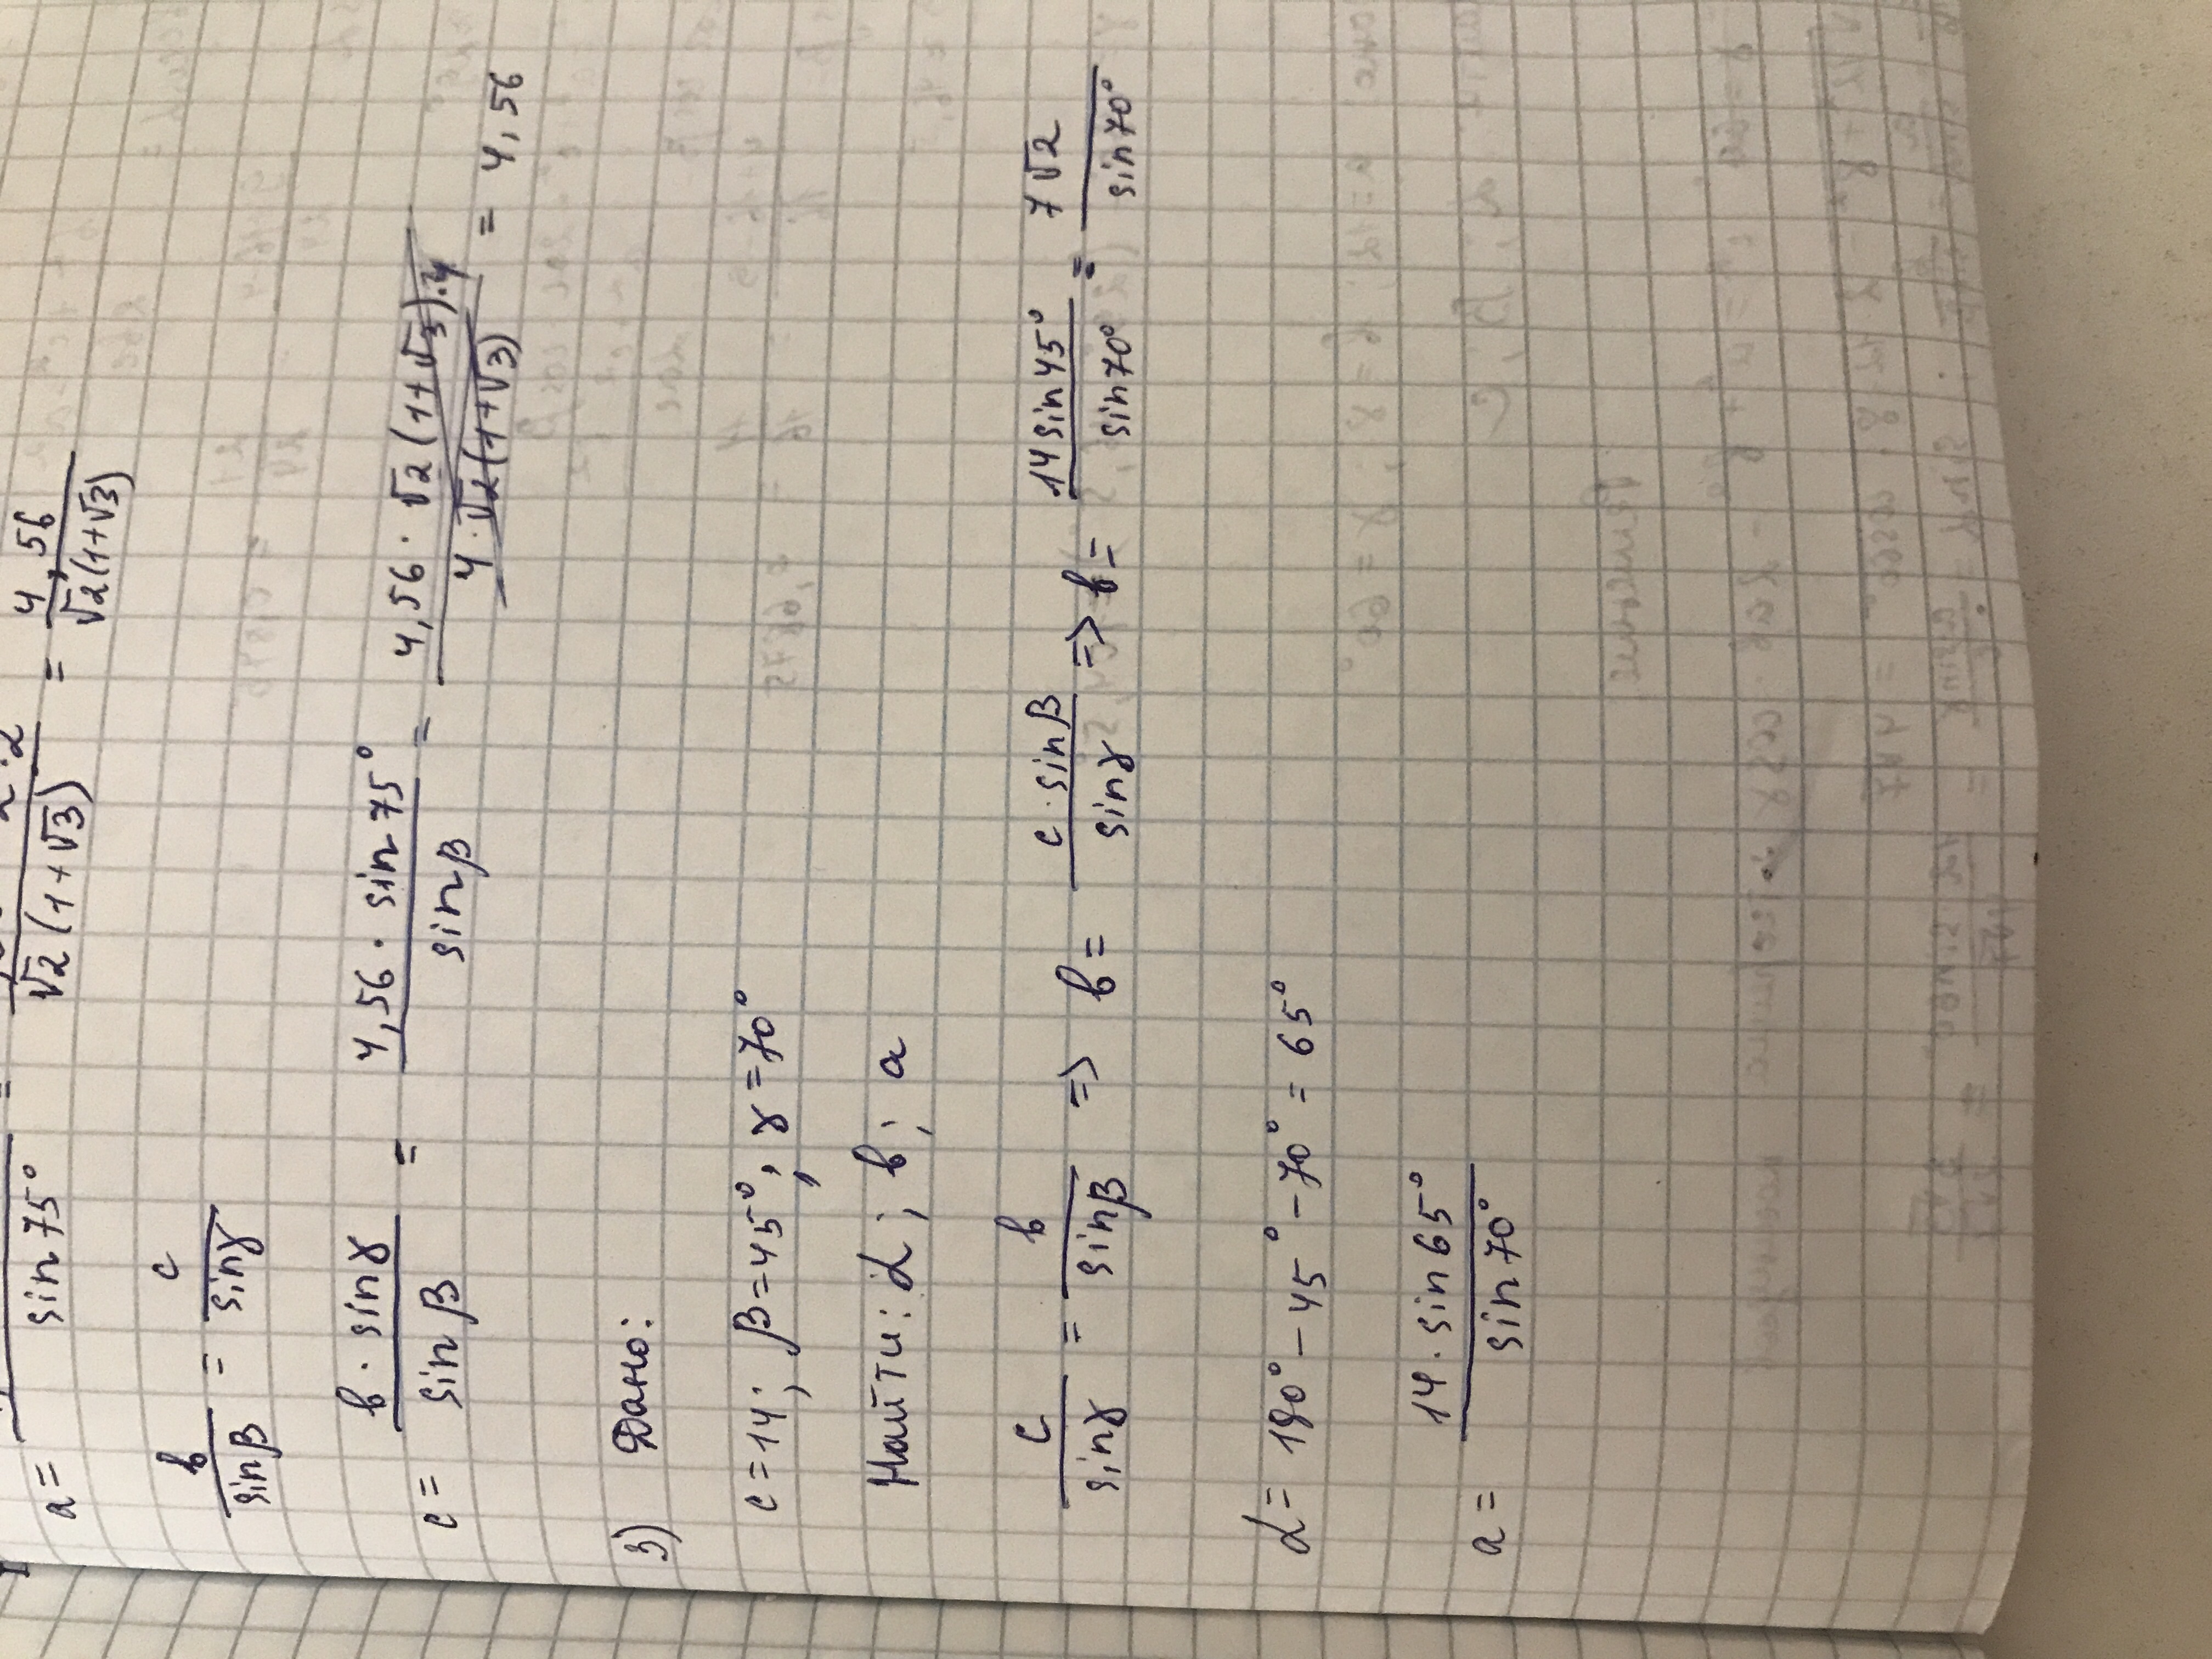 a = / sin 75° = / √2 (1+√3) = 4,56 / √2(1+√3)
b / sin β = c / sin γ
c = b · sin γ / sin β = 4,56 · sin 75° / sin β = 4,56 · √2 (1+√3) · 4 / 4 · √2 (1+√3) = 4,56
3) Дано:
c = 14; β = 45°, γ = 70°
Найти: α; b; a
c / sin γ = b / sin β => b = c · sin β / sin γ => b = 14 sin 45° / sin 70° = 7√2 / sin 70°
α = 180° – 45° – 70° = 65°
a = 14 · sin 65° / sin 70°